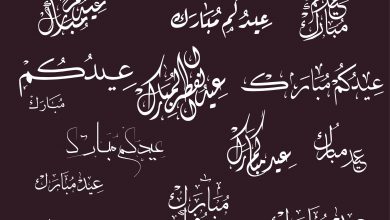 عيدكم مبارك
عِيدُكُمْ مُبَارَك
عيدكم مبارك
عِيدُكُمْ مُبَارَك
عيد الفطر المبارك
عِيدُكُمْ مُبَارَك
عيدكم مبارك
عيد مبارك
عيد مبارك
عِيدُ مُبَارَك
مُبَارَك
عِيدُ مُبَارَك